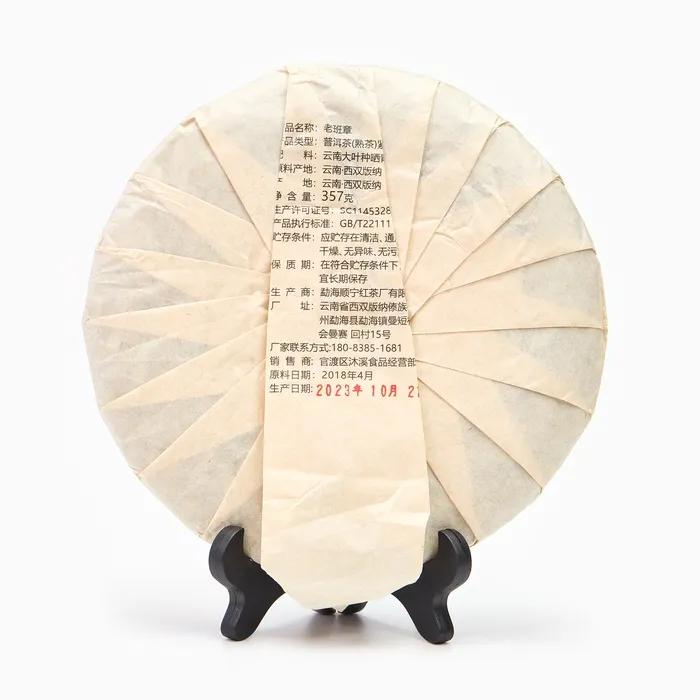 品名称: 老班章
产品类型: 普洱茶(熟茶)
料: 云南大叶种晒
原料产地: 云南·西双版纳
地: 云南·西双版纳
净 含 量: 357克
生产许可证号: SC1145328
产品执行标准: GB/T22111
贮存条件: 应贮存在清洁、通
干燥、无异味、无污
保 质 期: 在符合贮存条件下
宜长期保存
生 产 商: 勐海顺宁红茶厂有限
厂 址: 云南省西双版纳傣族
州勐海县勐海镇曼短
会曼赛 回村15号
厂家联系方式:180-8385-1681
销 售 商: 官渡区沐溪食品经营部
原料日期: 2018年4月
生产日期: 2023年 10月 2